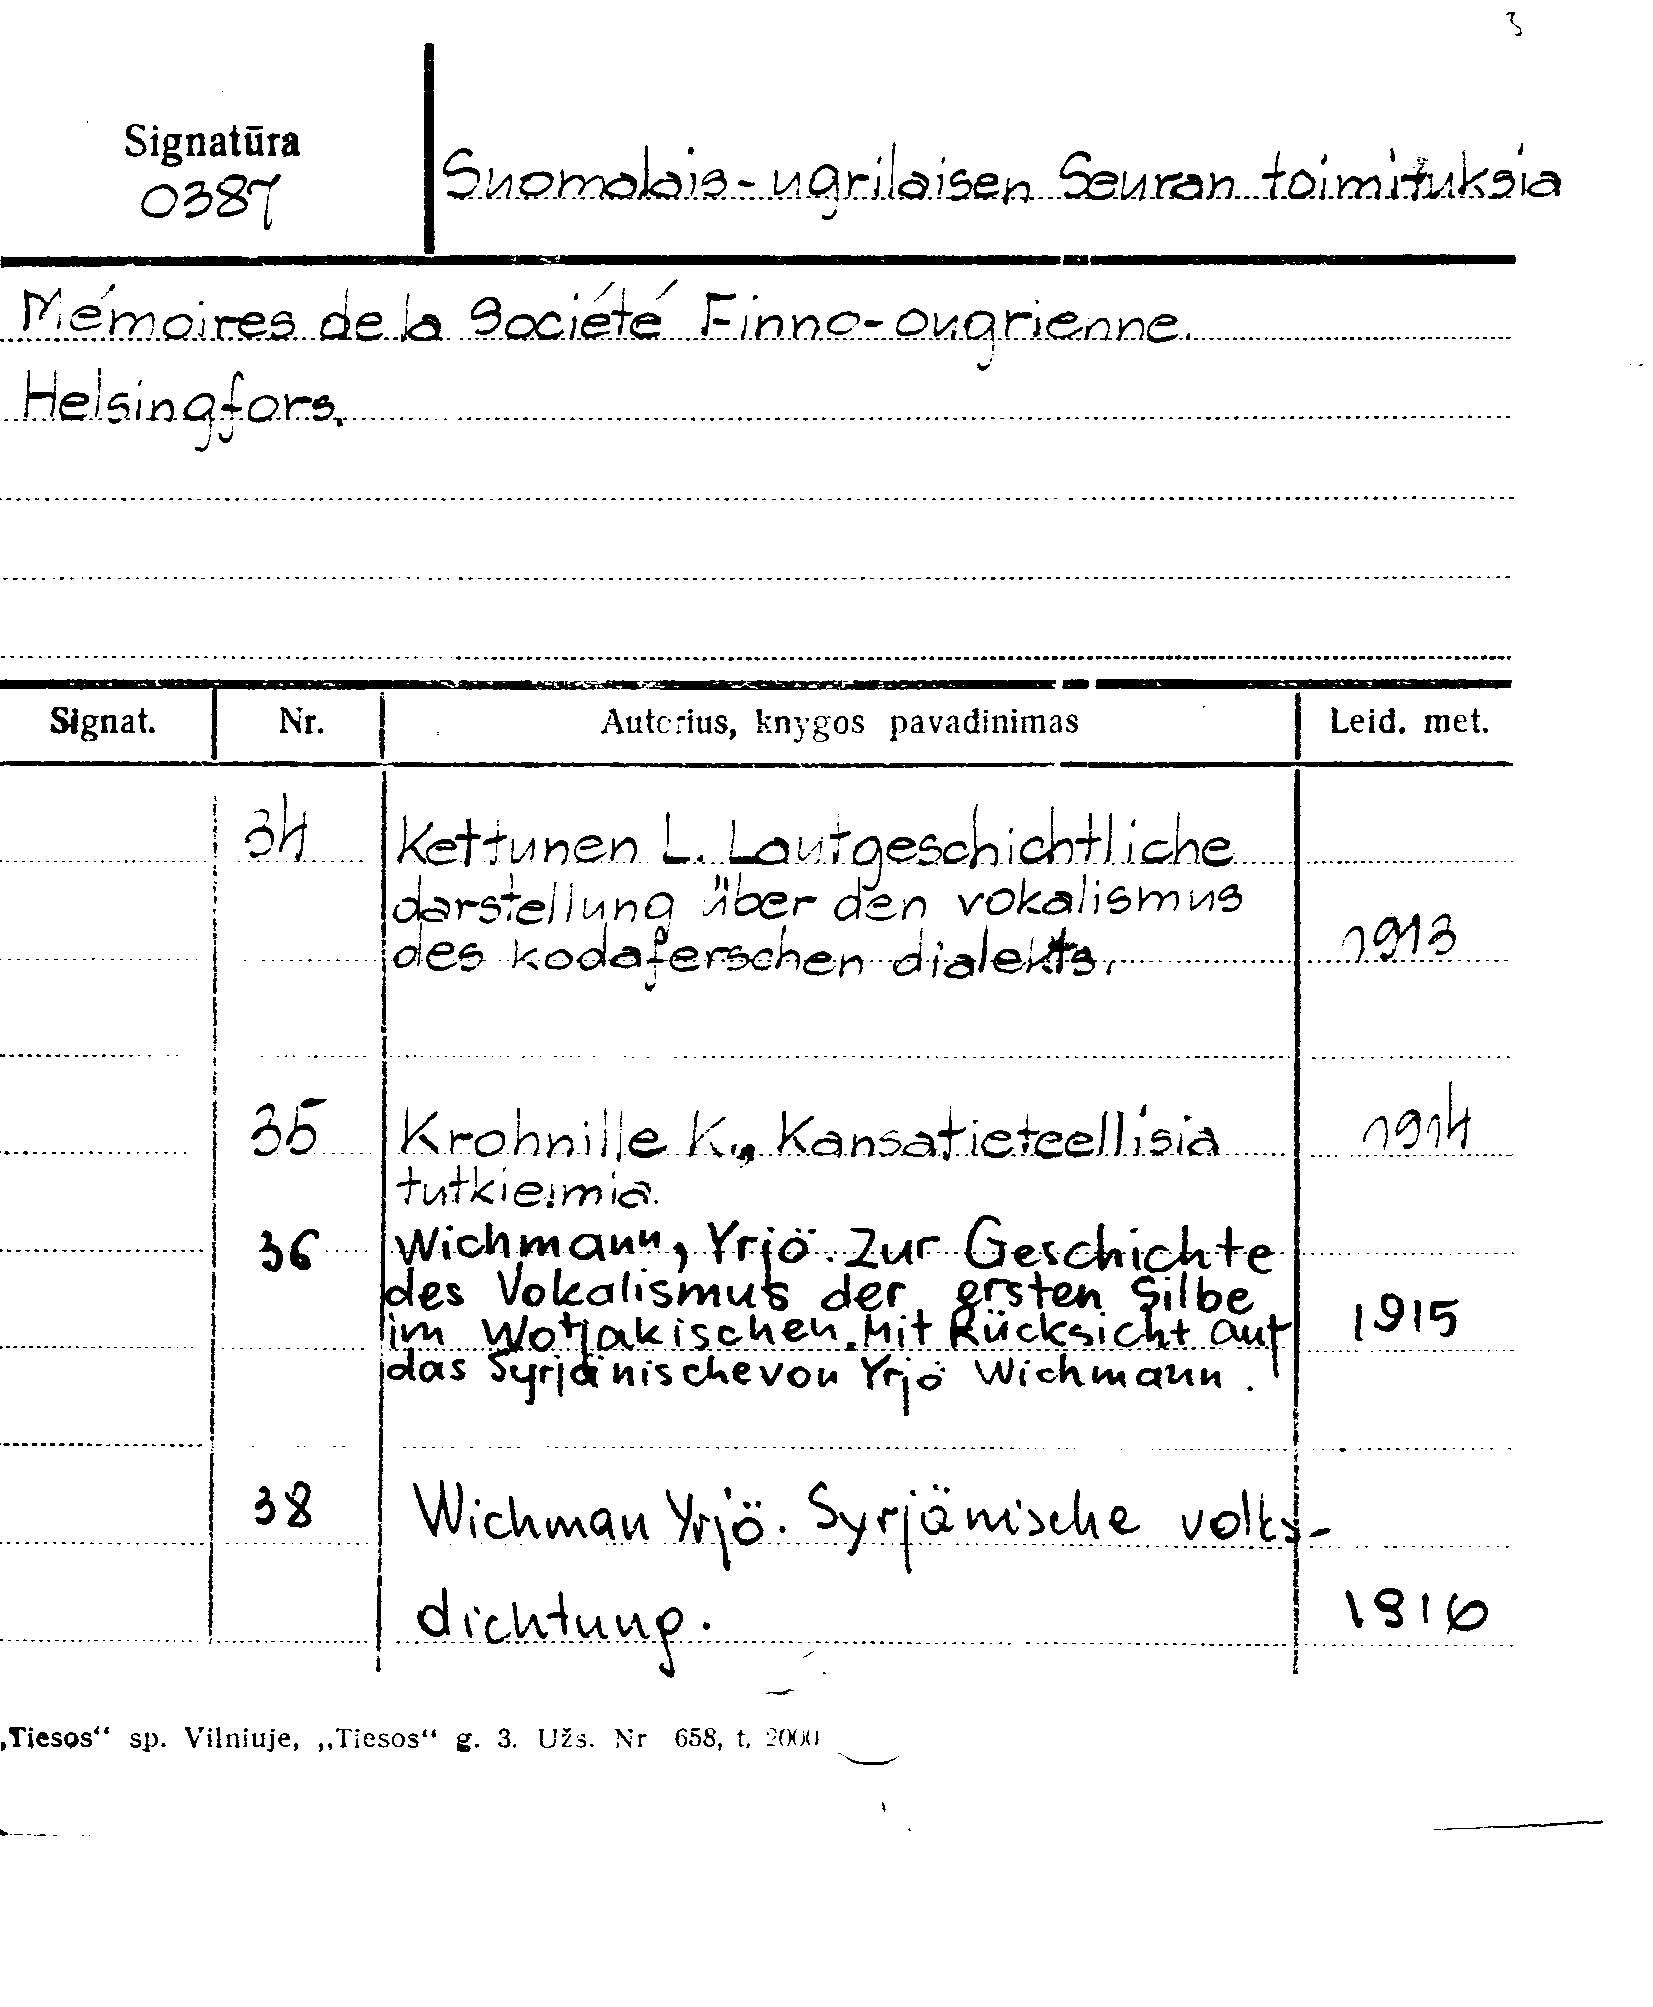 3
Signatūra
0387
Suomalais-ugrilaisen Seuran toimituksia
Mémoires de la Société Finno-ougrienne.
Helsingfors.
Signat. Nr. Autorius, knygos pavadinimas Leid. met.
34 Kettunen L. Lautgeschichtliche
darstellung über den vokalismus
des kodaferschen dialekts. 1913
35 Krohnille K., Kansatieteellisia 1914
tutkieimia.
36 Wichmann, Yrjö. Zur Geschichte
des Vokalismus der ersten Silbe
im Wotjakischen. Mit Rücksicht auf 1915
das Syrjänische von Yrjö Wichmann.
38 Wichman Yrjö. Syrjänische volks-
dichtung. 1916
„Tiesos“ sp. Vilniuje, „Tiesos“ g. 3. Užs. Nr 658, t. 2000